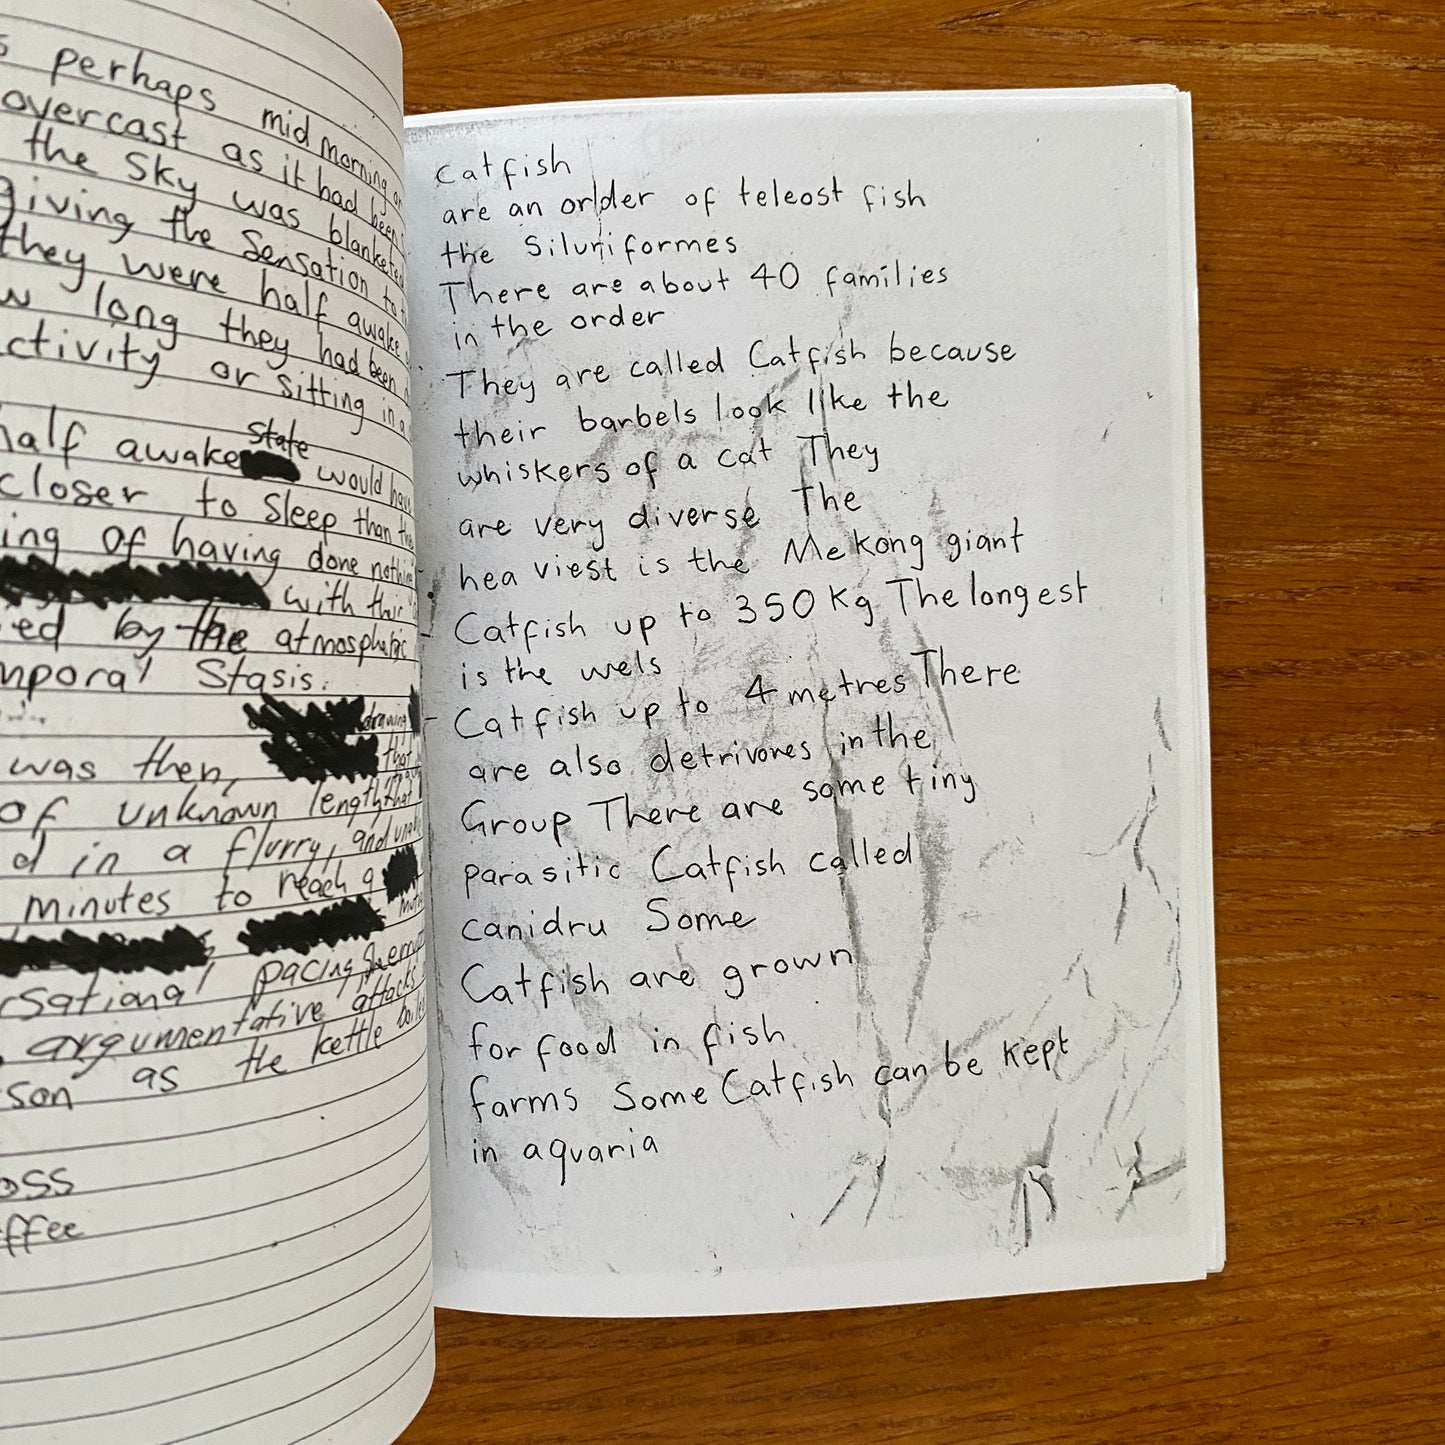 perhaps mid morning
overcast as it had been
the Sky was blanketed
giving the Sensation to
they were half awake
long they had been
or sitting in a
half awake state would have
closer to Sleep than the
of having done nothing
with their
by the atmospheric
Stasis.
drawing
was then, that
of unknown length that
d in a flurry, and
minutes to reach a
pacing,
argumentative attacks
son as the kettle
Catfish
are an order of teleost fish
the Siluriformes
There are about 40 families
in the order
They are called Catfish because
their barbels look like the
whiskers of a cat They
are very diverse The
hea viest is the Mekong giant
Catfish up to 350 Kg The longest
is the wels
Catfish up to 4 metres There
are also detrivores in the
Group There are some tiny
parasitic Catfish called
canidru Some
Catfish are grown
for food in fish
farms Some Catfish can be kept
in aquaria